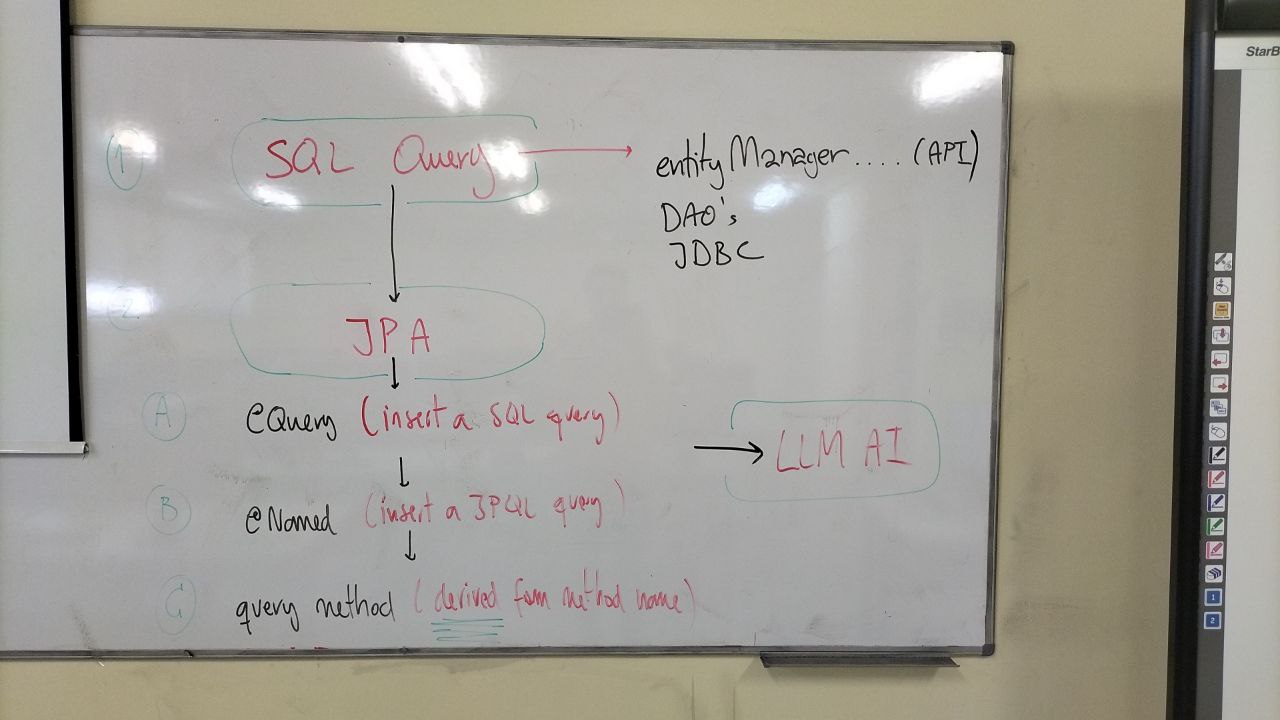 1 SQL Query → entityManager.... (API)
DAO's
JDBC
2 JPA
A @Query (insert a SQL query)
→ LLM AI
B @Named (insert a JPQL query)
C query method (derived fom method name)
StarB
1
2